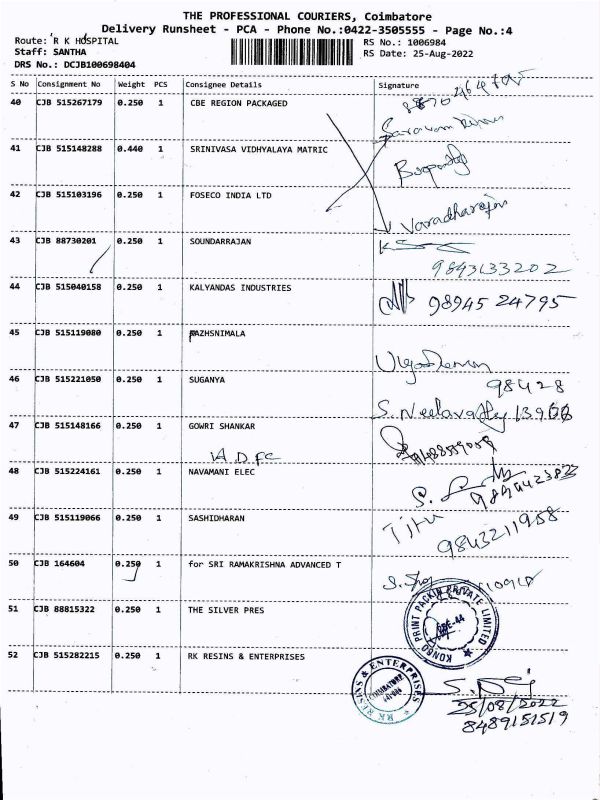 THE PROFESSIONAL COURIERS, Coimbatore
Delivery Runsheet - PCA - Phone No.:0422-3505555 - Page No.:4
Route: R K HOSPITAL
RS No.: 1006984
Staff: SANTHA
RS Date: 25-Aug-2022
DRS No.: DCJB100698404
S No Consignment No Weight PCS Consignee Details Signature
40 CJB 515267179 0.250 1 CBE REGION PACKAGED
41 CJB 515148288 0.440 1 SRINIVASA VIDHYALAYA MATRIC
42 CJB 515103196 0.250 1 FOSECO INDIA LTD
Varadharajan
43 CJB 88730201 0.250 1 SOUNDARRAJAN
9843133202
44 CJB 515040158 0.250 1 KALYANDAS INDUSTRIES
98945 24795
45 CJB 515119080 0.250 1 PAZHSNIMALA
46 CJB 515221050 0.250 1 SUGANYA
98428
47 CJB 515148166 0.250 1 GOWRI SHANKAR
48 CJB 515224161 0.250 1 NAVAMANI ELEC
49 CJB 515119066 0.250 1 SASHIDHARAN
9843211958
50 CJB 164604 0.250 1 for SRI RAMAKRISHNA ADVANCED T
51 CJB 88815322 0.250 1 THE SILVER PRES
KONGO PRINT PACKIN PRIVATE LIMITED
CBE-44
52 CJB 515282215 0.250 1 RK RESINS & ENTERPRISES
RK RESINS & ENTERPRISES
COIMBATORE
25/08/2022
8489151519